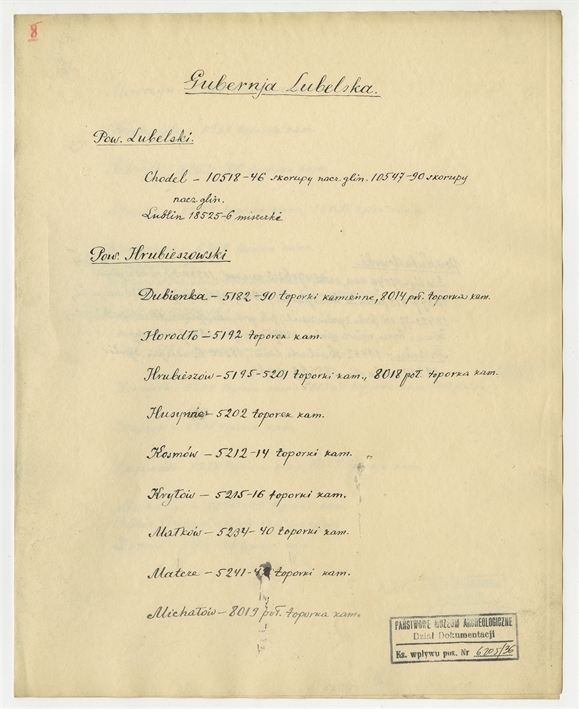 8
Gubernja Lubelska.
Pow. Lubelski.
Chodel – 10518-46 skorupy nacz. glin. 10547-90 skorupy
nacz. glin.
Lublin 18525-6 miseczki
Pow. Hrubieszowski
Dubienka – 5182-90 toporki kamienne, 8014 poł. toporka kam.
Horodło – 5192 toporek kam.
Hrubieszów – 5195-5201 toporki kam., 8018 poł. toporka kam.
– 5202 toporek kam.
Kosmów – 5212-14 toporki kam.
Kryłów – 5215-16 toporki kam.
Małków – 5234-40 toporki kam.
Matcze – 5241- toporki kam.
Michałów – 8019 poł. toporka kam.
PAŃSTWOWE MUZEUM ARCHEOLOGICZNE
Dział Dokumentacji
Ks. wpływu poz. Nr 6205/36